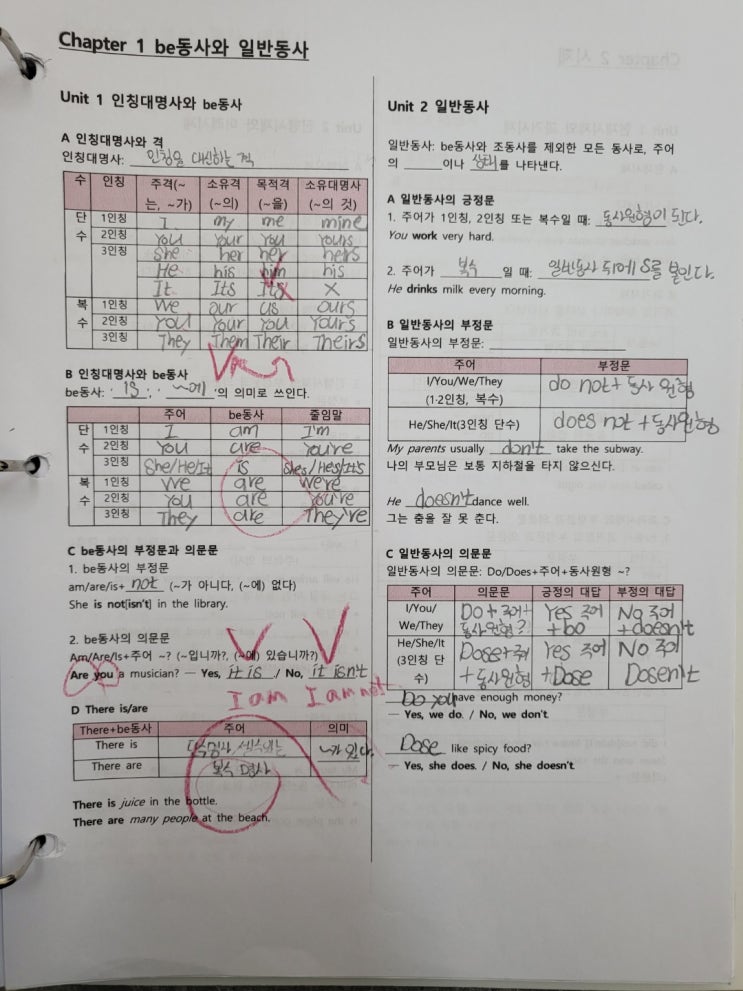 Chapter 1 be동사와 일반동사
Unit 1 인칭대명사와 be동사
A 인칭대명사와 격
인칭대명사: 인칭을 대신하는 격
수 인칭 주격(~는, ~가) 소유격(~의) 목적격(~을) 소유대명사(~의 것)
단수 1인칭 I my me mine
2인칭 You Your You Yours
3인칭 She her her hers
He his him his
It Its Its X
복수 1인칭 We our us ours
2인칭 You Your You Yours
3인칭 They Them Their Theirs
B 인칭대명사와 be동사
be동사: ' is ', ' ~에 '의 의미로 쓰인다.
주어 be동사 줄임말
단수 1인칭 I am I'm
2인칭 You are You're
3인칭 She/He/It is Shes/He's/It's
복수 1인칭 We are We're
2인칭 You are You're
3인칭 They are They're
C be동사의 부정문과 의문문
1. be동사의 부정문
am/are/is+ not (~가 아니다, (~에) 없다)
She is not[isn't] in the library.
2. be동사의 의문문
Am/Are/Is+주어 ~? (~입니까?, (~에) 있습니까?)
Are you a musician? — Yes, it is / No, it isn't
I am I am not
D There is/are
There+be동사 주어 의미
There is 단수명사, ~가 있다.
There are 복수 명사
There is juice in the bottle.
There are many people at the beach.
Unit 2 일반동사
일반동사: be동사와 조동사를 제외한 모든 동사로, 주어
의 ______이나 상태를 나타낸다.
A 일반동사의 긍정문
1. 주어가 1인칭, 2인칭 또는 복수일 때: 동사원형이 된다.
You work very hard.
2. 주어가 복수 일 때: 일반동사 뒤에 S를 붙인다.
He drinks milk every morning.
B 일반동사의 부정문
일반동사의 부정문:
주어 부정문
I/You/We/They do not+동사 원형
(1·2인칭, 복수)
He/She/It(3인칭 단수) does not+동사원형
My parents usually don't take the subway.
나의 부모님은 보통 지하철을 타지 않으신다.
He doesn't dance well.
그는 춤을 잘 못 춘다.
C 일반동사의 의문문
일반동사의 의문문: Do/Does+주어+동사원형 ~?
주어 의문문 긍정의 대답 부정의 대답
I/You/ Do+주어+ Yes 주어 No 주어
We/They 동사원형? +bo +doesn't
He/She/It Dose+주어 Yes 주어 No 주어
(3인칭 단수) +동사원형 +Dose Dosen't
Do you have enough money?
— Yes, we do. / No, we don't.
Dose like spicy food?
— Yes, she does. / No, she doesn't.